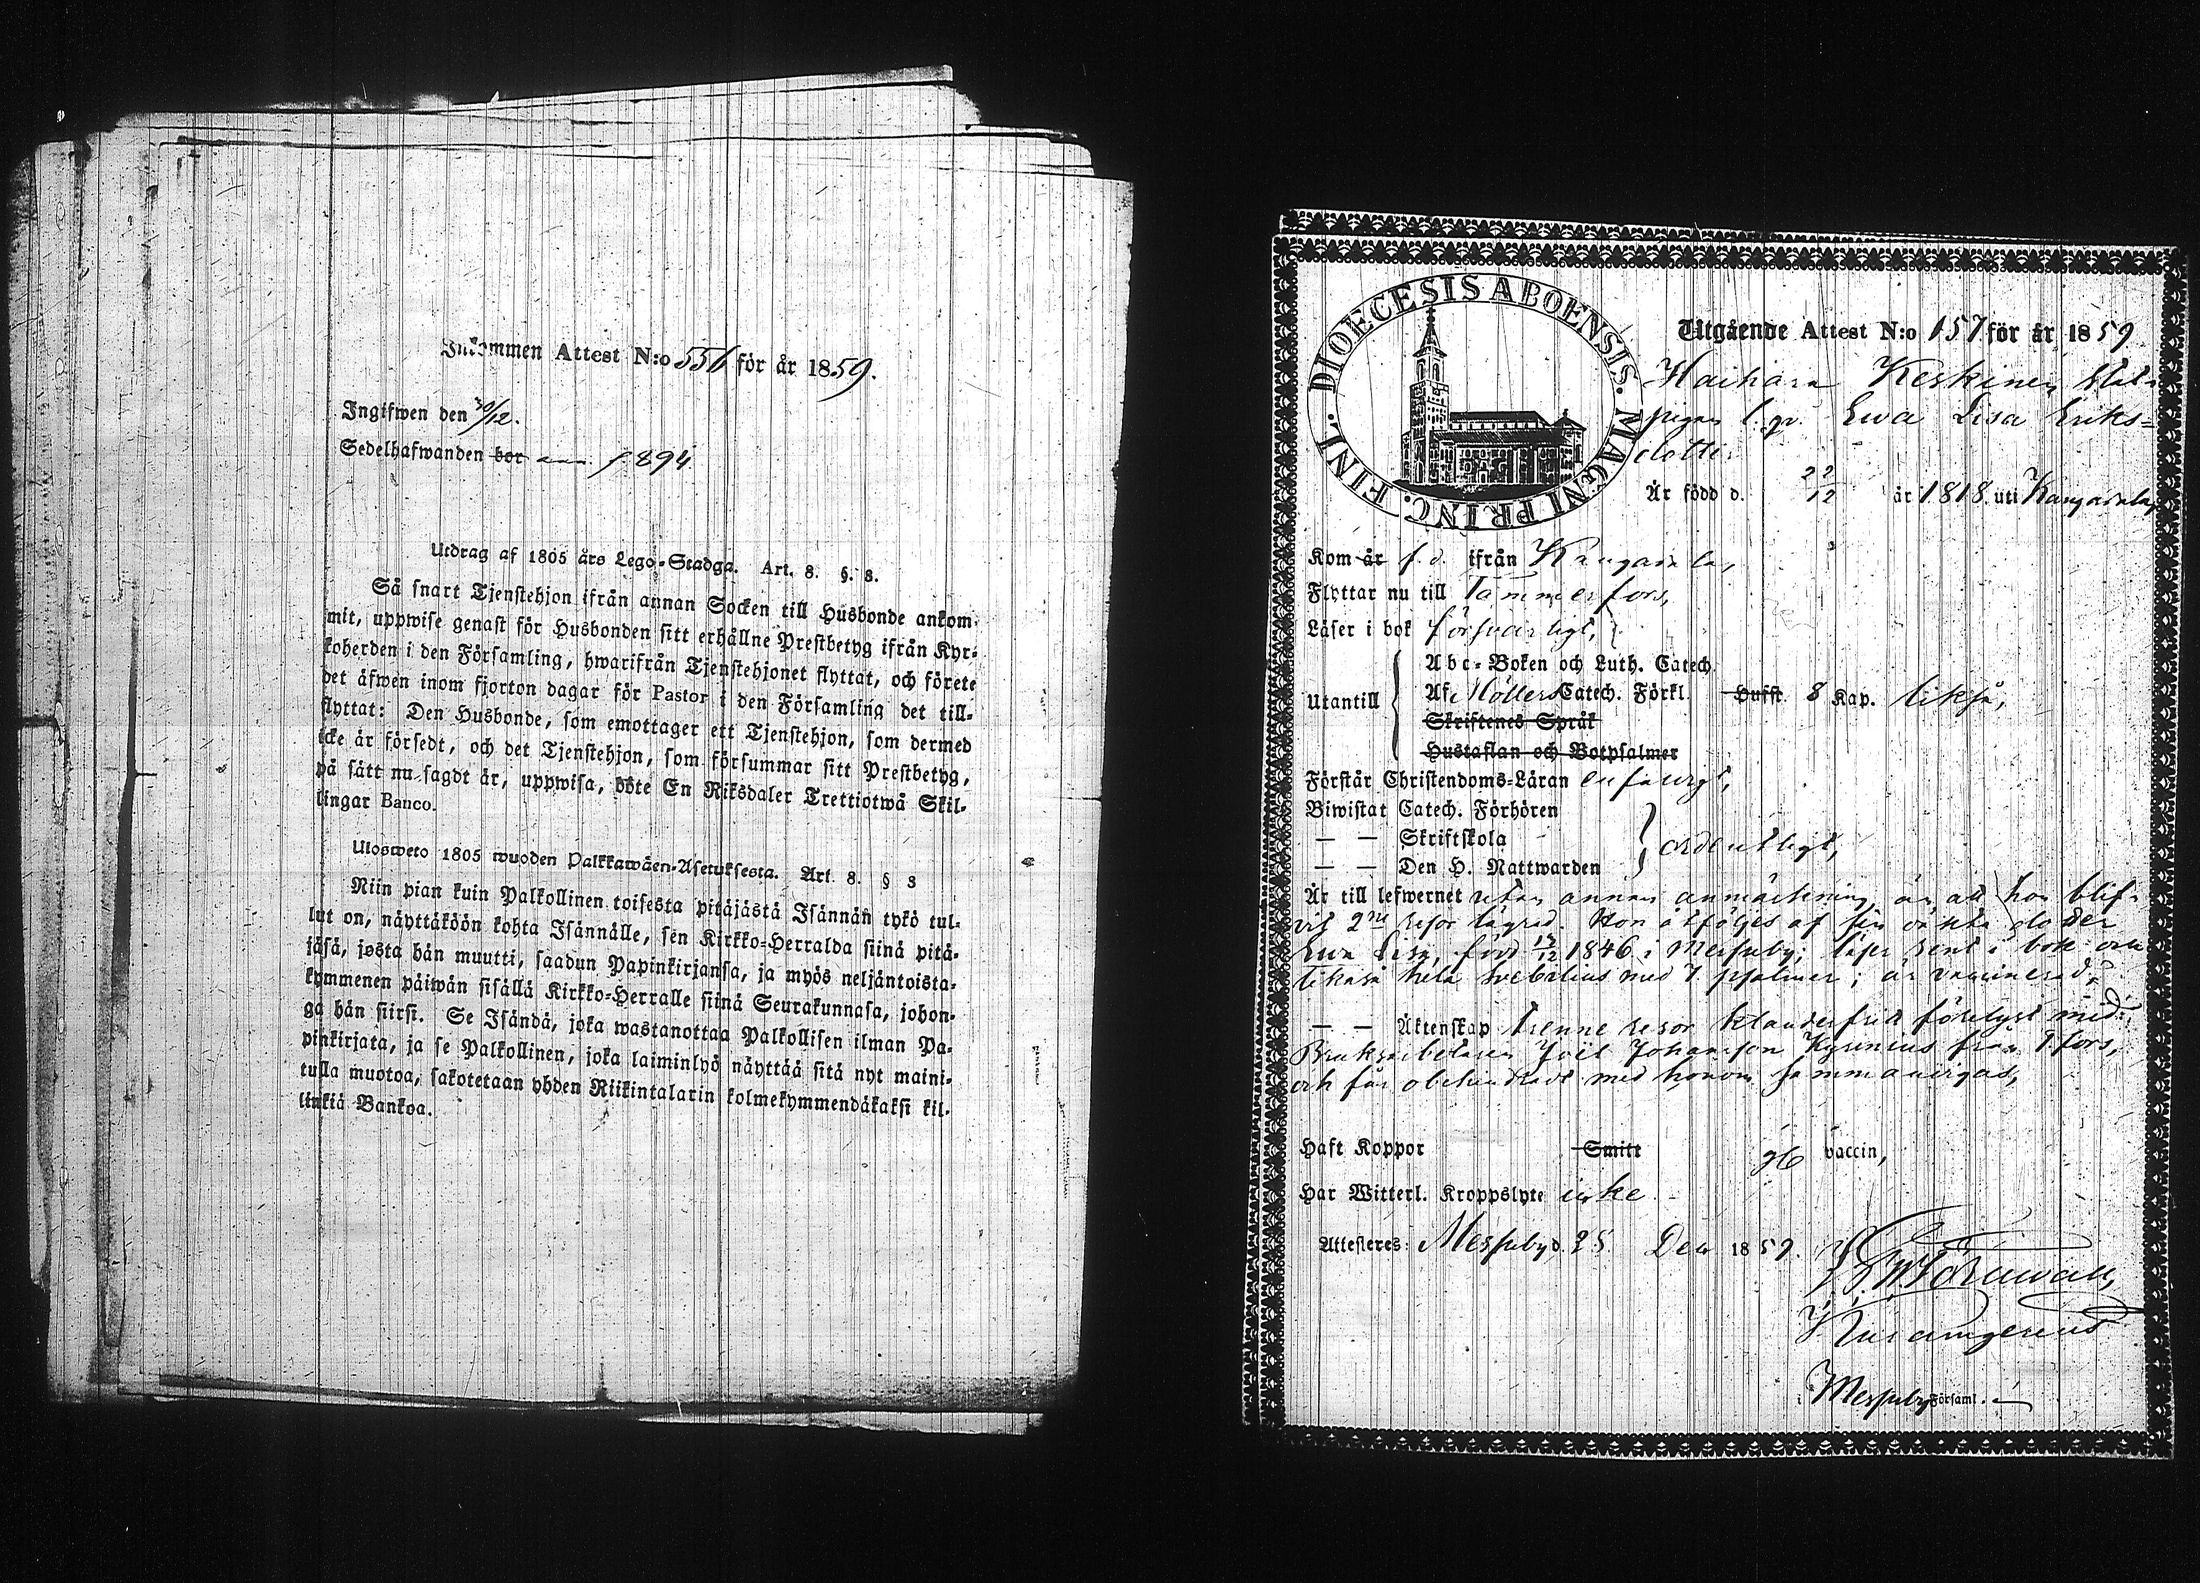 Inkommen Attest N:o 556 för år 1859.
Ingifwen den 30/12.
Sedelhafwanden bor ann. p 894
Utdrag af 1805 års Lego-Stadga. Art. 8. §. 8.
Så snart Tjenstehjon ifrån annan Socken till Husbonde ankom-
mit, uppwise genast för Husbonden sitt erhållne Prestbetyg ifrån Kyr-
koherden i den Församling, hwarifrån Tjenstehjonet flyttat, och förete
det äfwen inom fjorton dagar för Pastor i den Församling det till-
flyttat: Den Husbonde, som emottager ett Tjenstehjon, som dermed
icke är försedt, och det Tjenstehjon, som försummar sitt Prestbetyg,
på sätt nu sagdt är, uppwisa, böte En Riksdaler Trettiotwå Skil-
lingar Banco.
Ulosweto 1805 wuoden Palkkawäen-Asetuksesta. Art. 8. § 8
Niin pian kuin Palkollinen toisesta pitäjästä Isännän tykö tul-
lut on, näyttäköön kohta Isännälle, sen Kirkko-Herralda siinä pitä-
jäsä, josta hän muutti, saadun Papinkirjansa, ja myös neljäntoista-
kymmenen päiwän sisällä Kirkko-Herralle siinä Seurakunnasa, johon-
ga hän siirsi. Se Isändä, joka wastanottaa Palkollisen ilman Pa-
pinkirjata, ja se Palkollinen, joka laiminlyö näyttää sitä nyt maini-
tulla muotoa, sakotetaan yhden Riikintalarin kolmekymmendäkaksi kil-
linkiä Bankoa.
DIOECESIS ABOENSIS. MAGNI PRINC. FINL.
Utgående Attest N:o 157 för år 1859
Haihara Keskinen stat
pigan l. qv. Ewa Lisa Eriks=
dotter
Är född d. 22/12 år 1818 uti Kangasala
Kom år f. d. ifrån Kangasala,
Flyttar nu till Tammerfors,
Läser i bok försvarligt,
Utantill
Abc-Boken och Luth. Catech.
Af Möllers Catech. Förkl. Hufst. 8 Kap. likså,
Skriftenes Språk
Hustaflan och Botpsalmer
Förstår Christendoms-Läran enfaldigt,
Biwistat Catech. Förhören
— — Skriftskola
— — Den H. Nattwarden
ordentligt,
Är till lefwernet utan annan anmärkning, än att hon blif-
vit 2ne resor lägrad. Hon åtföljes af sin oäkta dotter
Ewa Lisa, född 17/12 1846 i Messuby; läser rent i bok och
likaså hela Svebelius med 7 psalmer; är vaccinerad.
— — Äktenskap trenne resor klanderfritt förelyst med
Bruksarbetaren Joël Johansson Kyrenius från T.fors,
och får obehindradt med honom sammanvigas,
Haft Koppor Smitt gb vaccin,
Har Witterl. Kroppslyte icke
Attesteres: Messuby d. 25 Dec 1859.
i Messuby Församl.